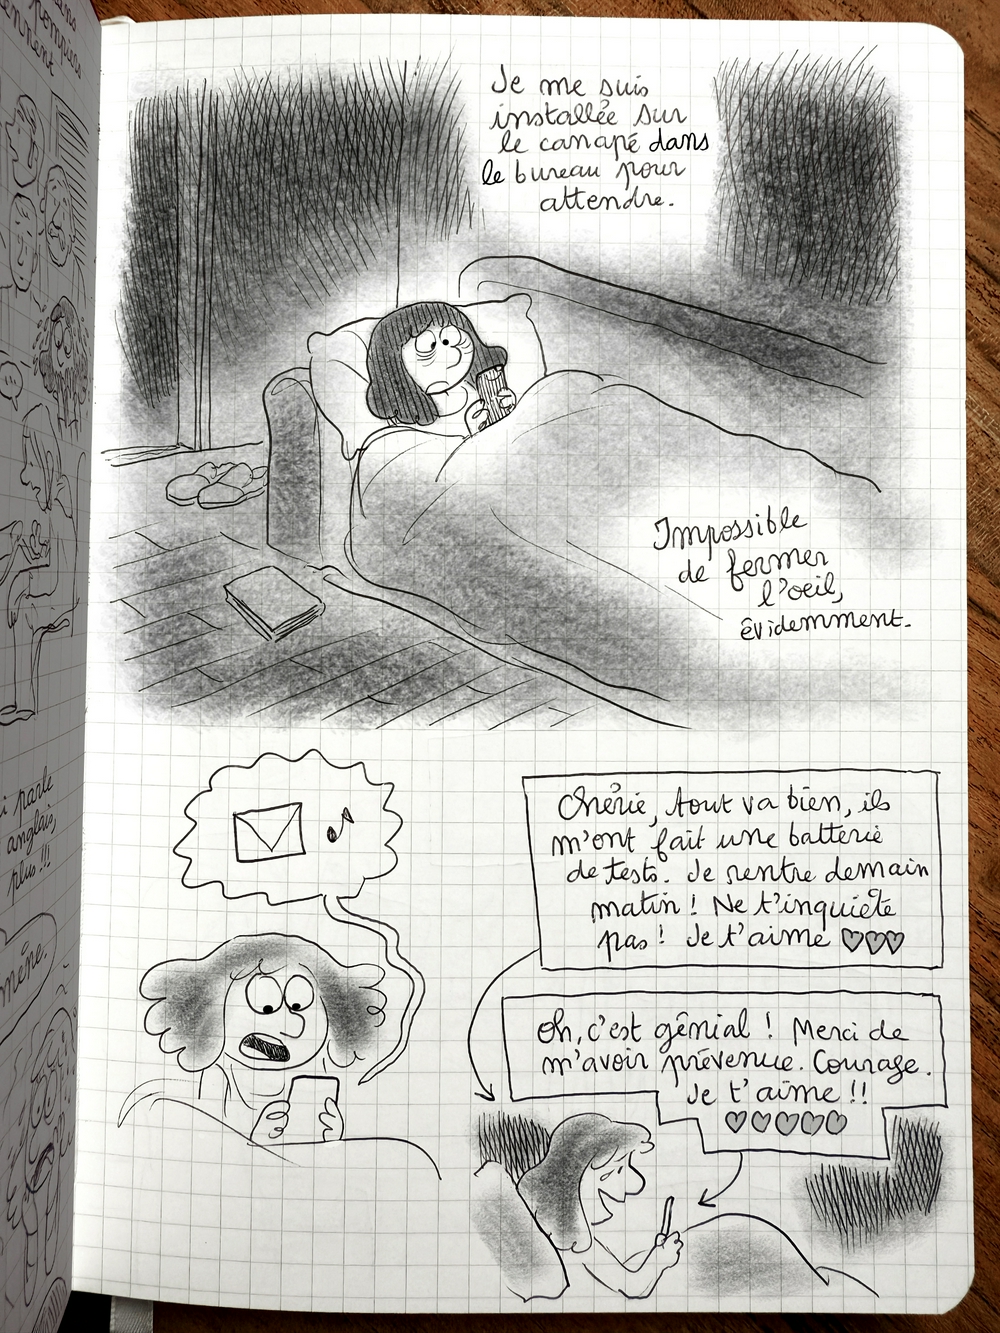 pompiers
Je me suis
installée sur
le canapé dans
le bureau pour
attendre.
Impossible
de fermer
l'oeil,
évidemment.
i parle
anglais,
plus !!!
même.
Chérie, tout va bien, ils
m'ont fait une batterie
de tests. Je rentre demain
matin ! Ne t'inquiète
pas ! Je t'aime ♡♡♡
Oh, c'est génial ! Merci de
m'avoir prévenue. Courage.
Je t'aime !!
♡♡♡♡♡